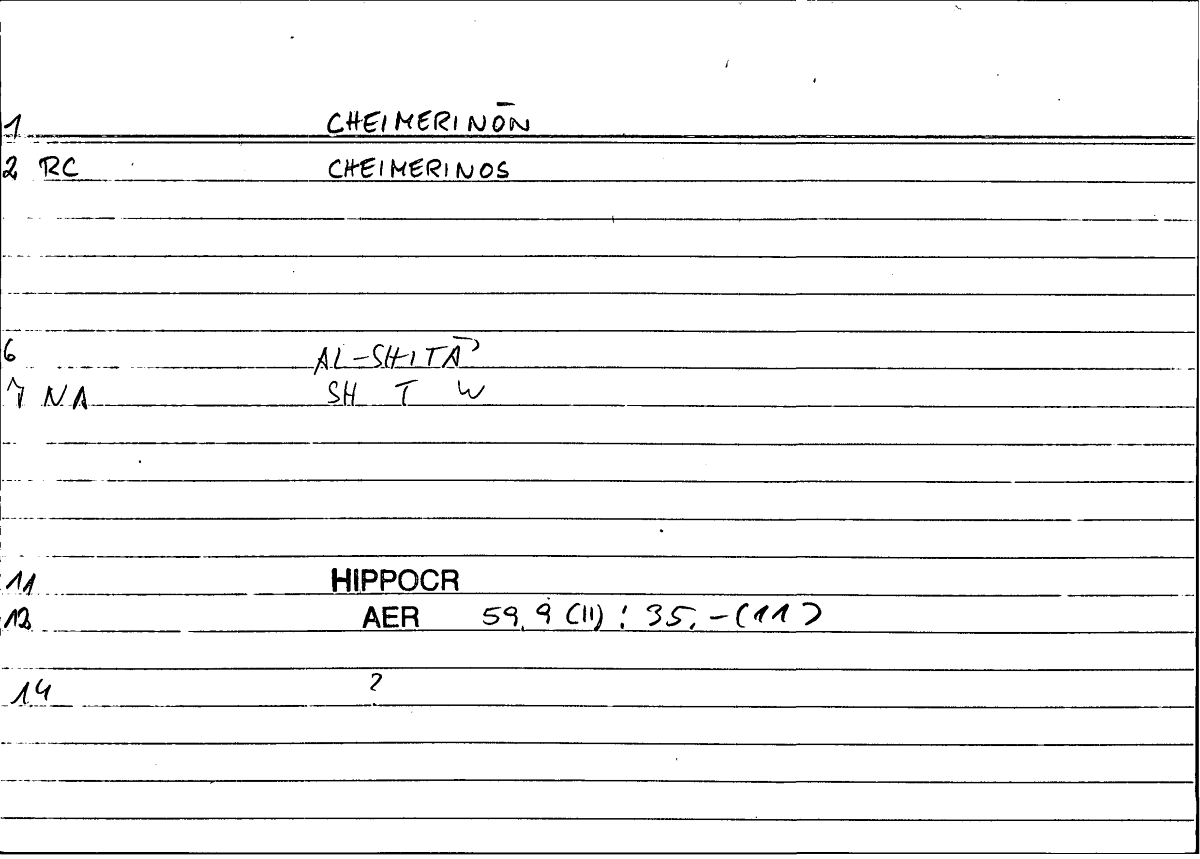 1 CHEIMERINŌN
2 RC CHEIMERINOS
6 AL-SHITĀʾ
7 NA SH T W
11 HIPPOCR
12 AER 59, 9 (11) : 35, - (11)
14 ?